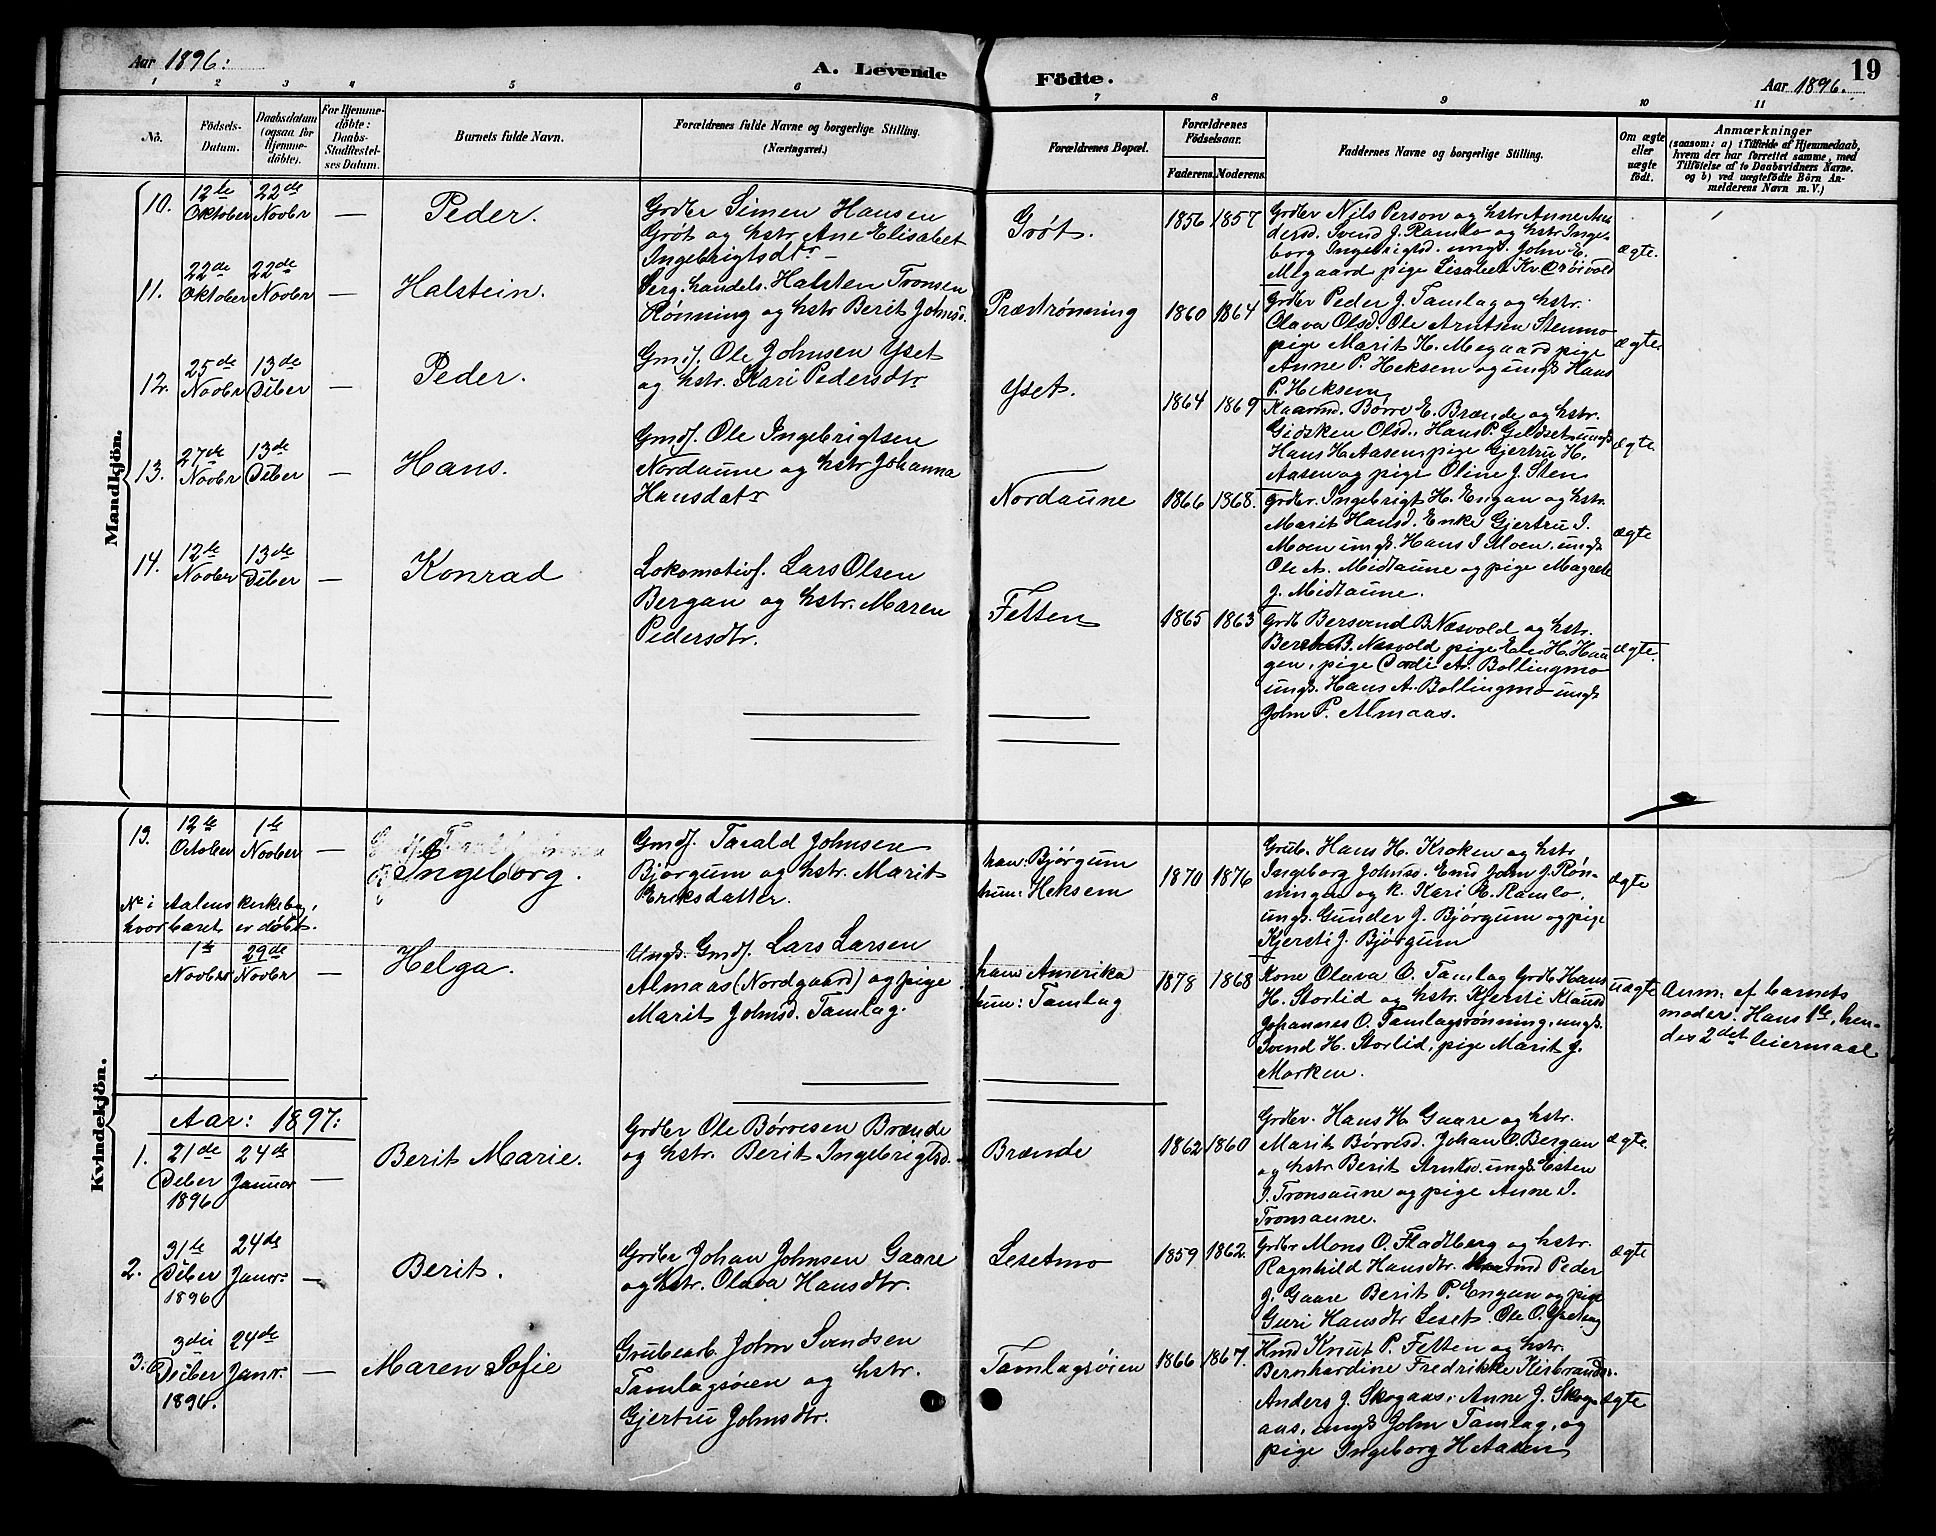 Aar 1896. A. Levende Födte. Aar 1896. 19
1 2 3 4 5 6 7 8 9 10 11
No.
Födsels-
Datum.
Daabsdatum
(ogsaa for
Hjemme-
döbte).
For Hjemme-
döbte:
Daabs-
Stadfæstel-
ses Datum.
Barnets fulde Navn.
Forældrenes fulde Navne og borgerlige Stilling.
(Næringsvei.)
Forældrenes Bopæl.
Forældrenes
Födselsaar.
Faderens. Moderens.
Faddernes Navne og borgerlige Stilling.
Om ægte
eller
uægte
födt.
Anmærkninger
(saasom: a) i Tilfælde af Hjemmedaab,
hvem der har forrettet samme, med
Tilföielse af to Daabsvidners Navne.
og b) ved uægtefödte Börn An-
melderens Navn m. V.)
Mandkjön.
10. 12te Oktober 22de Novbr — Peder.
Grdbr Simen Hansen
Grøt og hstr. Ane Elisabet
Ingebrigtsdtr
Grøt. 1856 1857
Grdbr Nils Person og hstr Anne An-
dersd. Svend J. Ramlo og hstr Inge-
borg Ingebrigtsd. ungk. John E.
Megaard pige Lisabet Kv. Drøivold
ægte.
11. 22de Oktober 22de Novbr — Halstein.
Berg. handels. Halsten Tronsen
Rønning og hstr Berit Johnsd.
Præstrønning 1860 1864
Grdbr Peder J. Tamlag og hstr.
Olava Olsd. Ole Arntsen Stenmo
pige Marit H. Megaard pige
Anne P. Heksem og ungk Hans
P. Heksem
ægte
12. 25de Novbr 13de Dcber — Peder.
Gmdf. Ole Johnsen Yset
og hstr. Kari Pedersdtr
Yset. 1864 1869
Kaarmd. Børre E. Brænde og hstr.
Gidsken Olsd. Hans P. Gjeldset ungk
Hans H. Aasen pige Gjertru H.
Aasen og pige Oline J. Sten
ægte
13. 27de Novbr 13de Dcber — Hans.
Gmdf. Ole Ingebrigtsen
Nordaune og hstr Johanna
Hansdatr
Nordaune 1866 1868.
Grdbr. Ingebrigt H. Engan og hstr.
Marit Hansd. Enke Gjertru I.
Moen ungk. Hans I Moen. ungk
Ole A. Midtaune og pige Magrete
J. Midtaune.
ægte
14. 12te Novbr 13de Dcber — Konrad
Lokomotivf. Lars Olsen
Bergan og hstr. Maren
Pedersdtr.
Fetten 1865 1863
Grdb Bersvend B. Næsvold og hstr.
Beret B. Næsvold pige Ele H. Hau
gen, pige Cordi A. Bollingmo
ungk. Hans A. Bollingmo ungk
John P. Almaas.
ægte.
Kvindekjön.
13. 12te October 1te Novber — Ingeborg.
Gmdf. Tarald Johnsen
Bjørgum og hstr. Marit
Eriksdatter.
han: Bjørgum
hun: Heksem
1870 1876
Grub. Hans H. Kroken og hstr
Ingeborg Johnsd. Emd John J. Røn-
ningen og k. Kari E. Ramlo.
ungk. Gunder J. Bjørgum og pige
Kjersti J. Bjørgum
ægte
No i Aalens kirkebog,
hvor baret er døbt.
1te Novbr 29de Novbr — Helga.
Ungk. Gmdf. Lars Larsen
Almaas (Nordgaard) og pige
Marit Johnsd. Tamlag.
han Amerika
hun: Tamlag
1878 1868
Kone Olava O. Tamlag Grdb. Hans
H. Storlid og hstr. Kjersti Klausd
Johannes O. Tamlagsrønning, ungk.
Svend H. Storlid, pige Marit J.
Morken.
uægte
Anm. af barnets
moder. Hans 1te, hen-
des 2det leiermaal
Aar: 1897:
1. 21de Dcber 1896 24de Januar — Berit Marie.
Grdbr Ole Børresen Brænde
og hstr. Berit Ingebrigtsd.
Brænde 1862 1860
Grdbr. Hans H Gaare og hstr.
Marit Børresd. Johan O. Bergan
og hstr Berit Arntsd. ungk Esten
I. Tronsaune og pige Anne I.
Tronsaune.
ægte.
2. 31te Dcber 1896 24de Janr. — Berit.
Grdbr Johan Johnsen Gaare
og hstr. Olava Hansdtr.
Lesetmo 1859 1862.
Grdbr Mons O. Fladtberg og hstr.
Ragnhild Hansdtr. Peder
J. Gaare Berit P. Engan og pige
Guri Hansdtr Leset. Ole O.
ægte
3. 3die Dcber 1896. 24de Janr. — Maren Sofie
Grubearb. John Svendsen
Tamlagsøien og hstr.
Gjertru Johnsdtr.
Tamlagsøien 1866 1867.
Hmd Knut P. Fetten og hstr.
Bernhardine Fredrikke
Anders J. Skogaas, Anne J. Skog-
aas, ungk John Tamlag, og
pige Ingeborg H Aasen
ægte